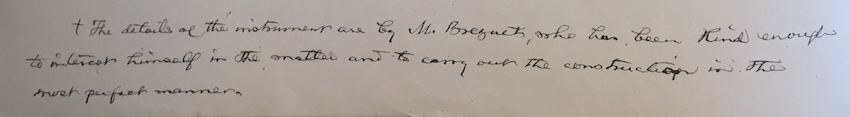 † The details of the instrument are by M. Breguet, who has been kind enough
to interest himself in the matter and to carry out the construction in the
most perfect manner.